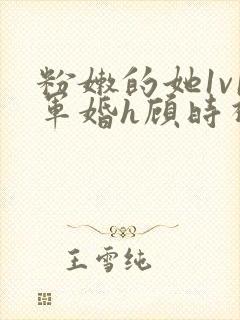 粉嫩的她1v1
军婚h顾时
王雪纯